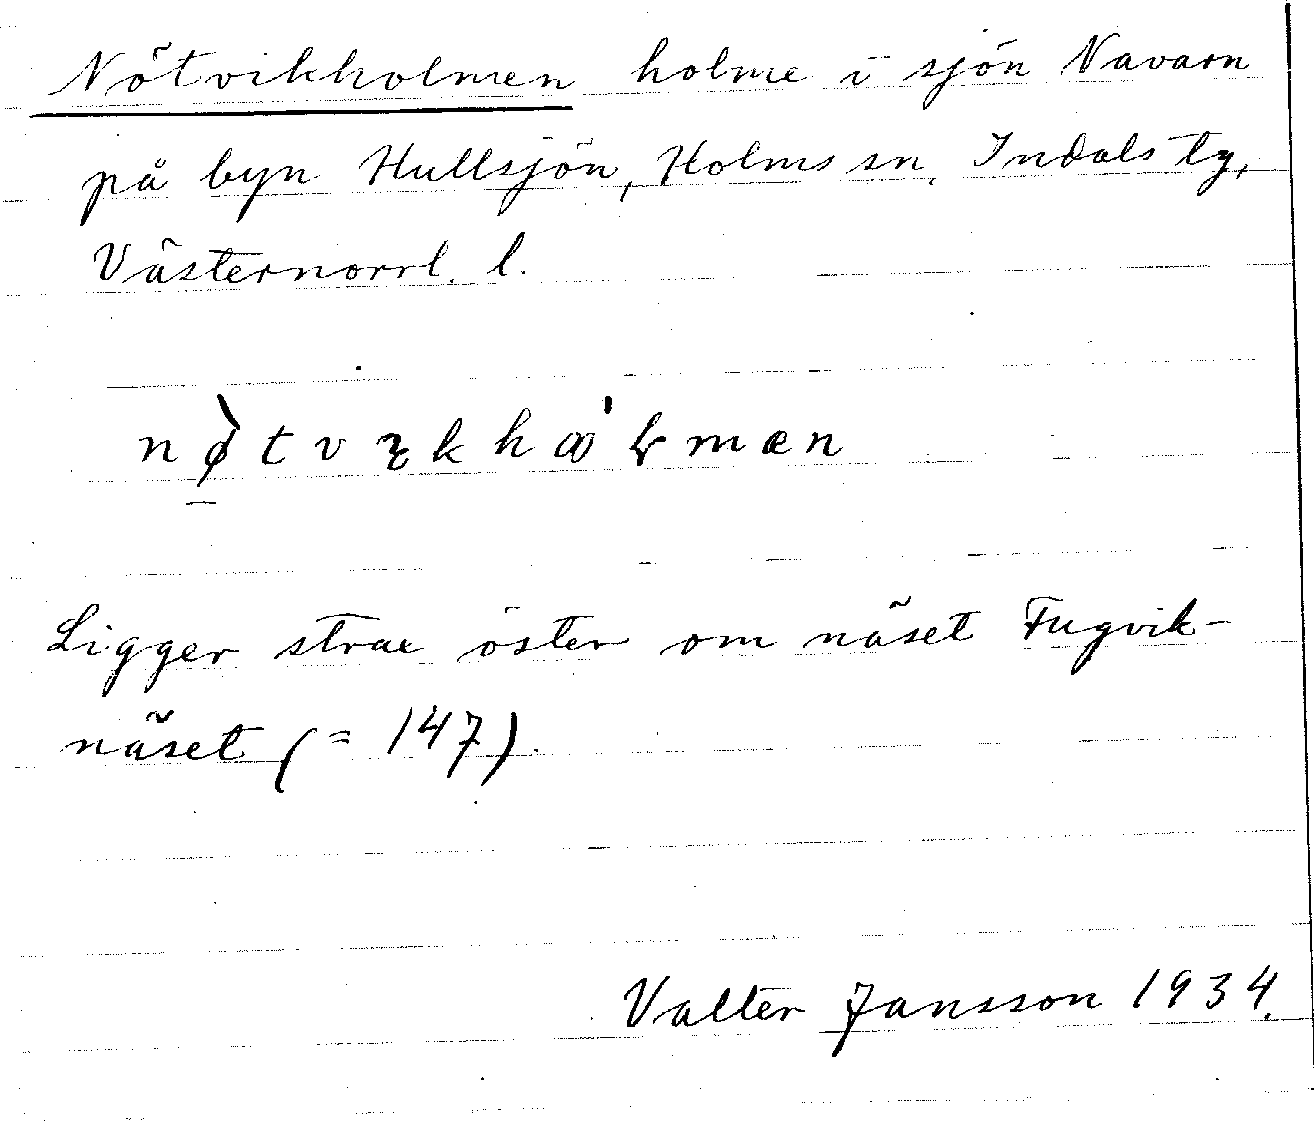 Nötvikholmen holme i sjön Navarn
på byn Hullsjön, Holms sn, Indals tg,
Västernorrl. l.
Ligger strax öster om näset Fugvik-
näset (= 147).
Valter Jansson 1934.